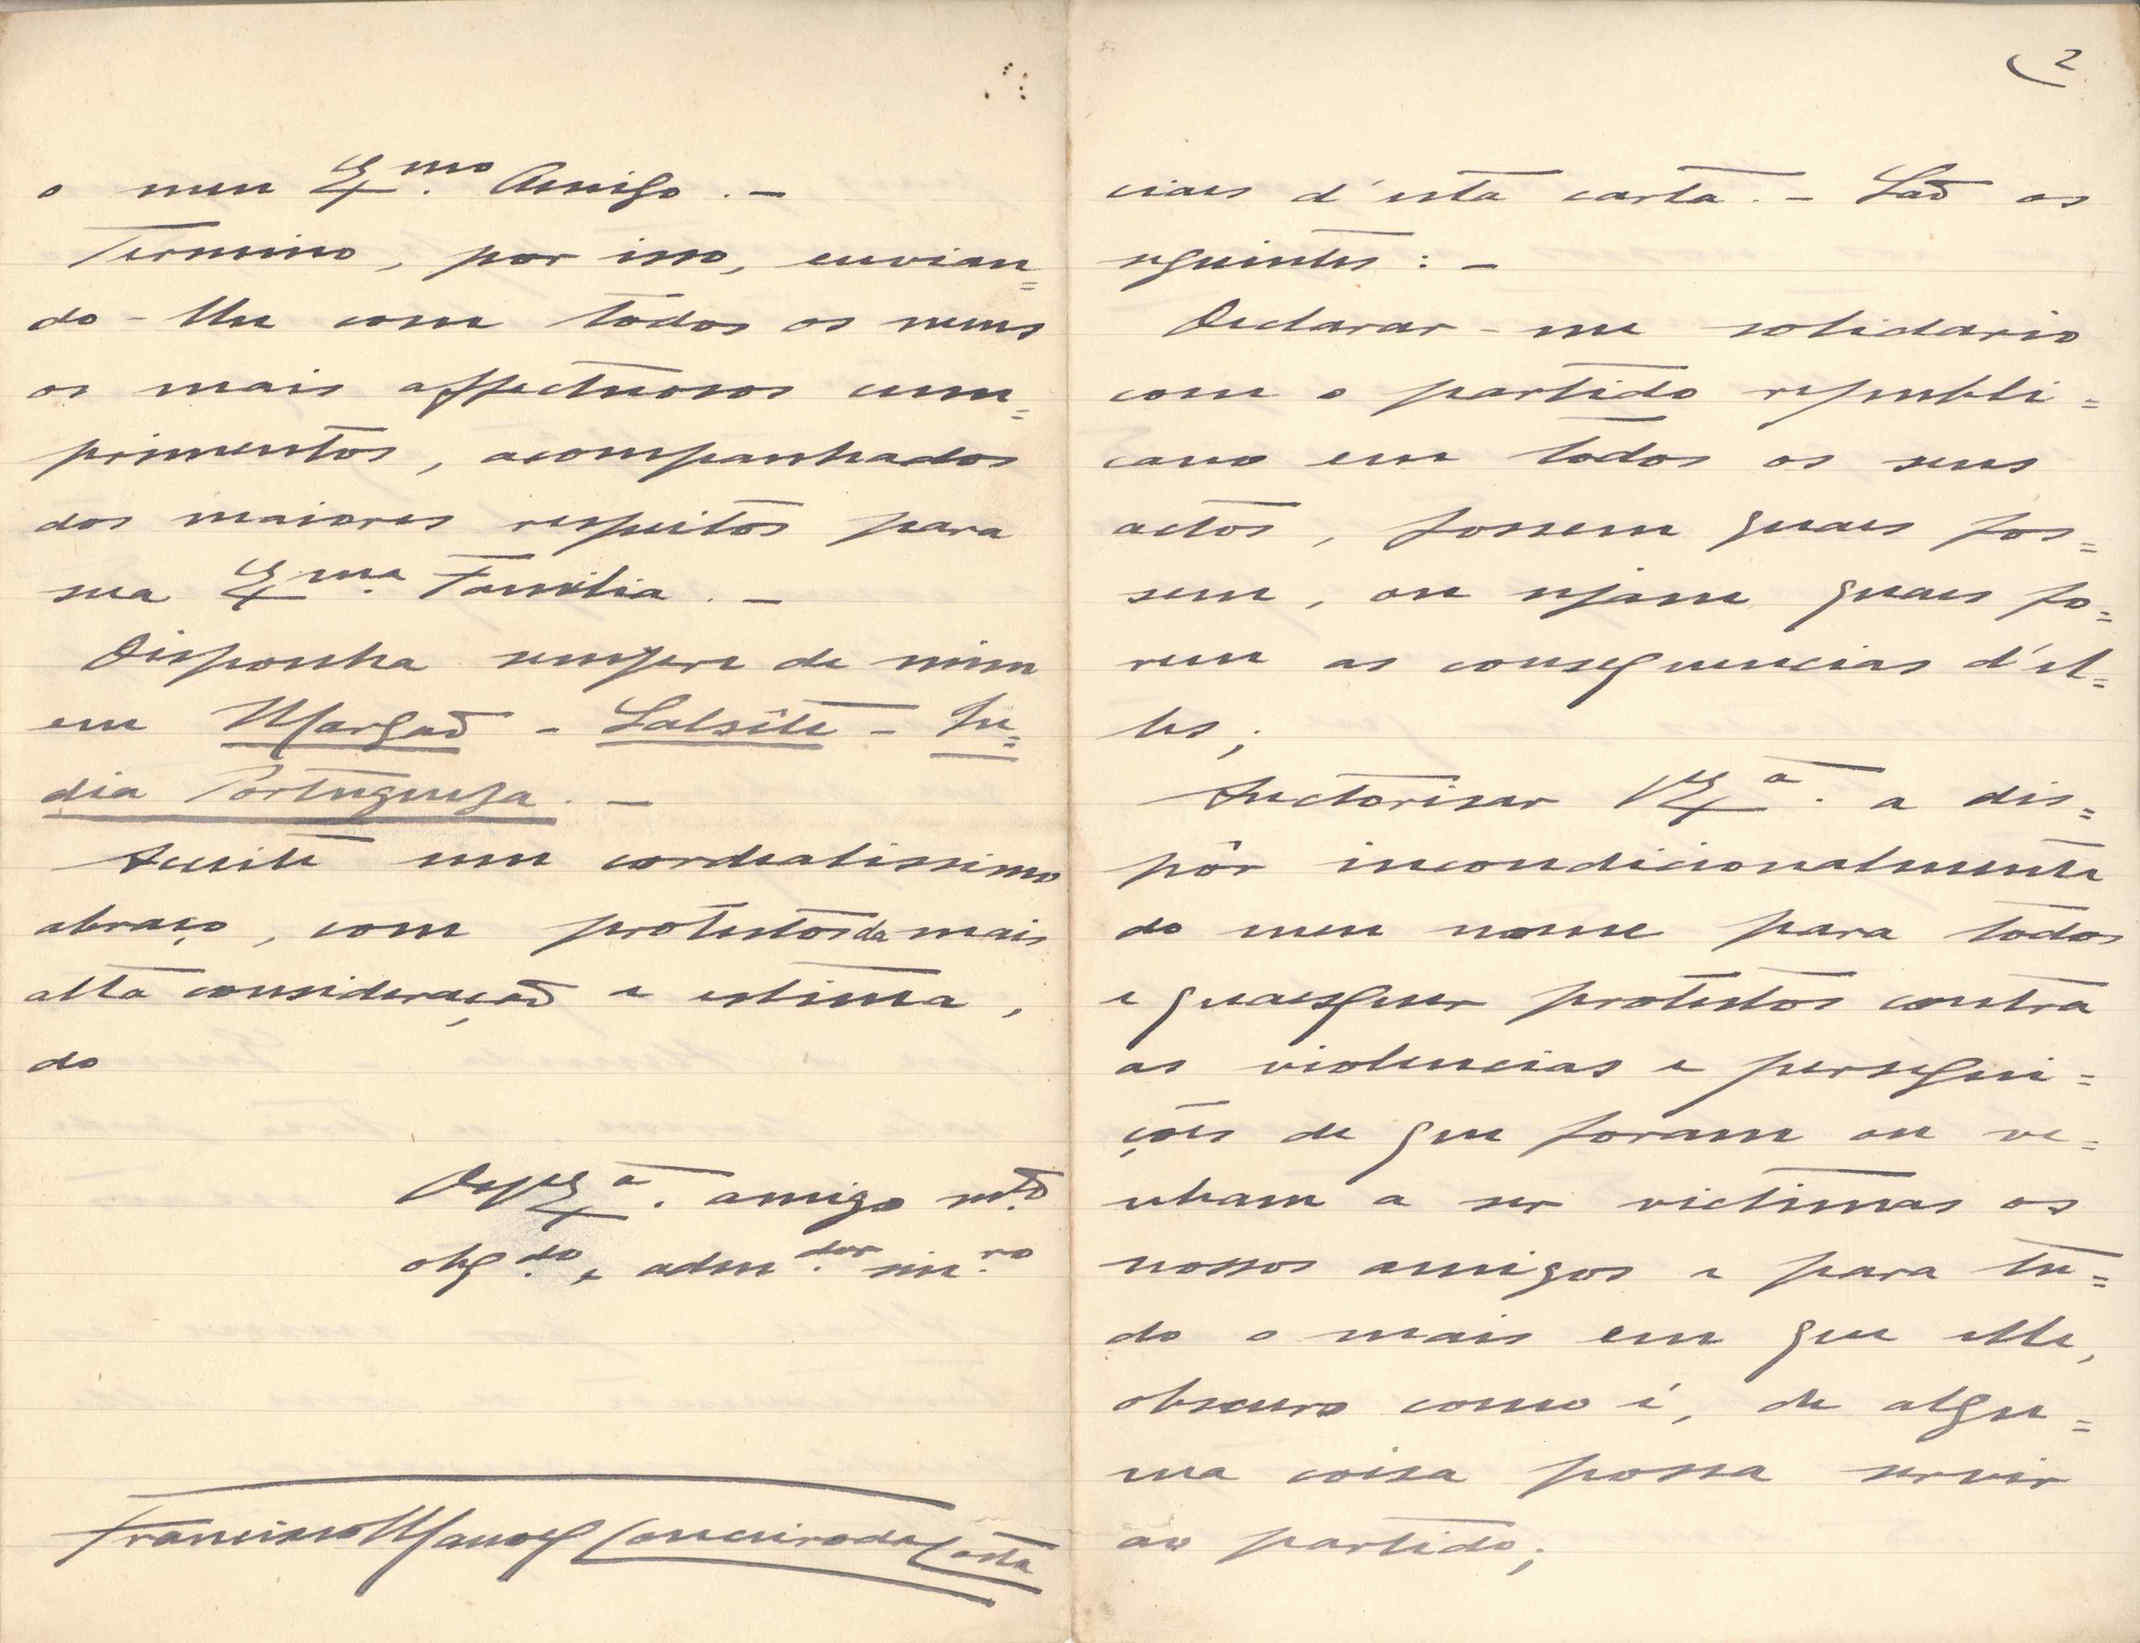 o meu Ex.mo Amigo. –
Termino, por isso, envian=
do-lhe com todos os meus
os mais affectuosos cum=
primentos, acompanhados
dos maiores respeitos para
sua Ex.ma Familia. –
Disponha sempre de mim
em Margaõ – Salsête – In=
dia Portugueza. –
Acceite um cordealissimo
abraço, com protestos da mais
alta consideraçaõ e estima,
do
De V Ex.a amigo m.to
obg.do e adm.dor sin.ro
Francisco Manoel Carneiro da Costa
2
ciaes d'esta carta. – Saõ os
seguintes: –
Declarar-me solidario
com o partido republi=
cano em todos os seus
actos, fossem quaes fos=
sem, ou sejam quaes fo=
rem as consequencias d'el=
les;
Auctorisar V Ex.a a dis=
pôr incondicionalmente
do meu nome para todos
e quaesquer protestos contra
as violencias e persegui=
ções de que foram ou ve=
nham a ser victimas os
nossos amigos e para tu=
do o mais em que elle,
obscuro como é, de algu=
ma coisa possa servir
ao partido;